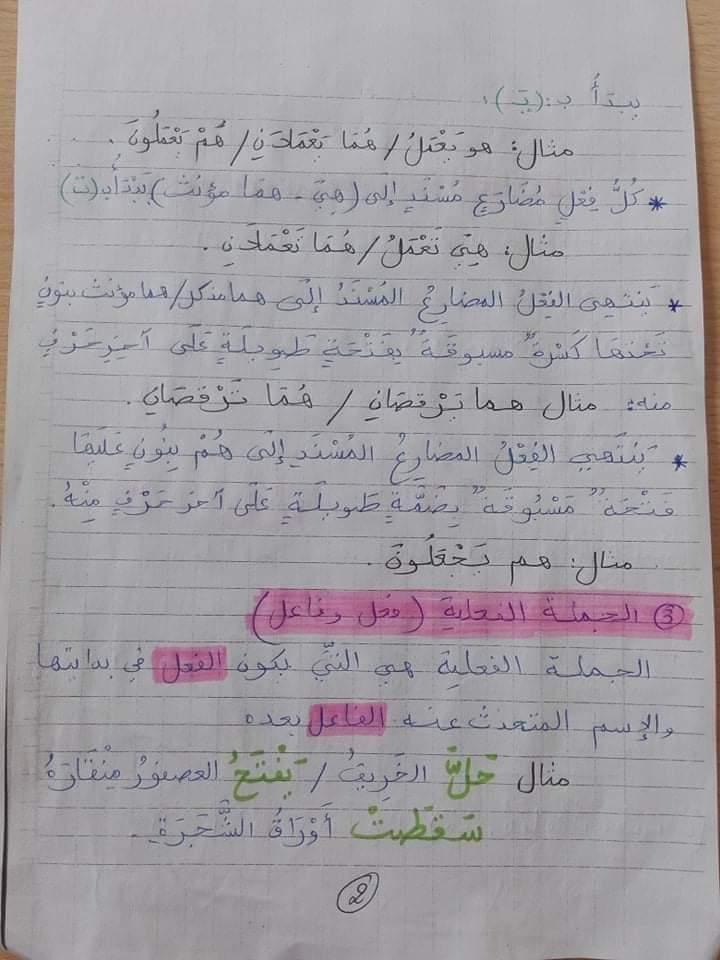 يبدأُ بـ: (يَـ):
مثال: هو يَعْمَلُ / هُمَا يَعْمَلَانِ / هُمْ يَعْمَلُونَ .
* كُلُّ فِعْلٍ مُضَارَعٍ مُسْنَدٍ إِلَى (هِيَ - هما مؤنث) يَبْدَأُ بـ(تَ)
مثال: هِيَ تَعْمَلُ / هُمَا تَعْمَلَانِ .
* يَنتهي الفِعْلُ المضارِعُ المُسْنَدُ إِلَى هما مذكر / هما مؤنث بنونٍ
تَحْتَهَا كَسْرَةٌ مسبوقَةٌ بِفَتْحَةٍ طَوِيلَةٍ عَلَى آخِرِ حَرْفٍ
منه: مثال هما يَرْقصَانِ / هُمَا تَرْقصَانِ .
* يَنْتَهِي الفِعْلُ المضارِعُ المُسْنَدِ إِلَى هُمْ بِنُونٍ عَلَيْهَا
فَتْحَةٌ مَسْبُوقَةٌ بِضَمَّةٍ طَوِيلَةٍ عَلَى آخر حَرْفٍ مِنْهُ .
مثال: هم يَجْعَلُونَ .
③ الجملة الفعلية (فعل وفاعل)
الجملة الفعلية هي التّي يكون الفعل في بدايتها
والإسم المتحدث عنه الفاعل بعده
مثال حَلَّ الخَرِيفُ / يَفْتَحُ العصفورُ مِنْقَارَهُ
سَقَطَتْ أَوْرَاقُ الشَّجَرَةِ .
2